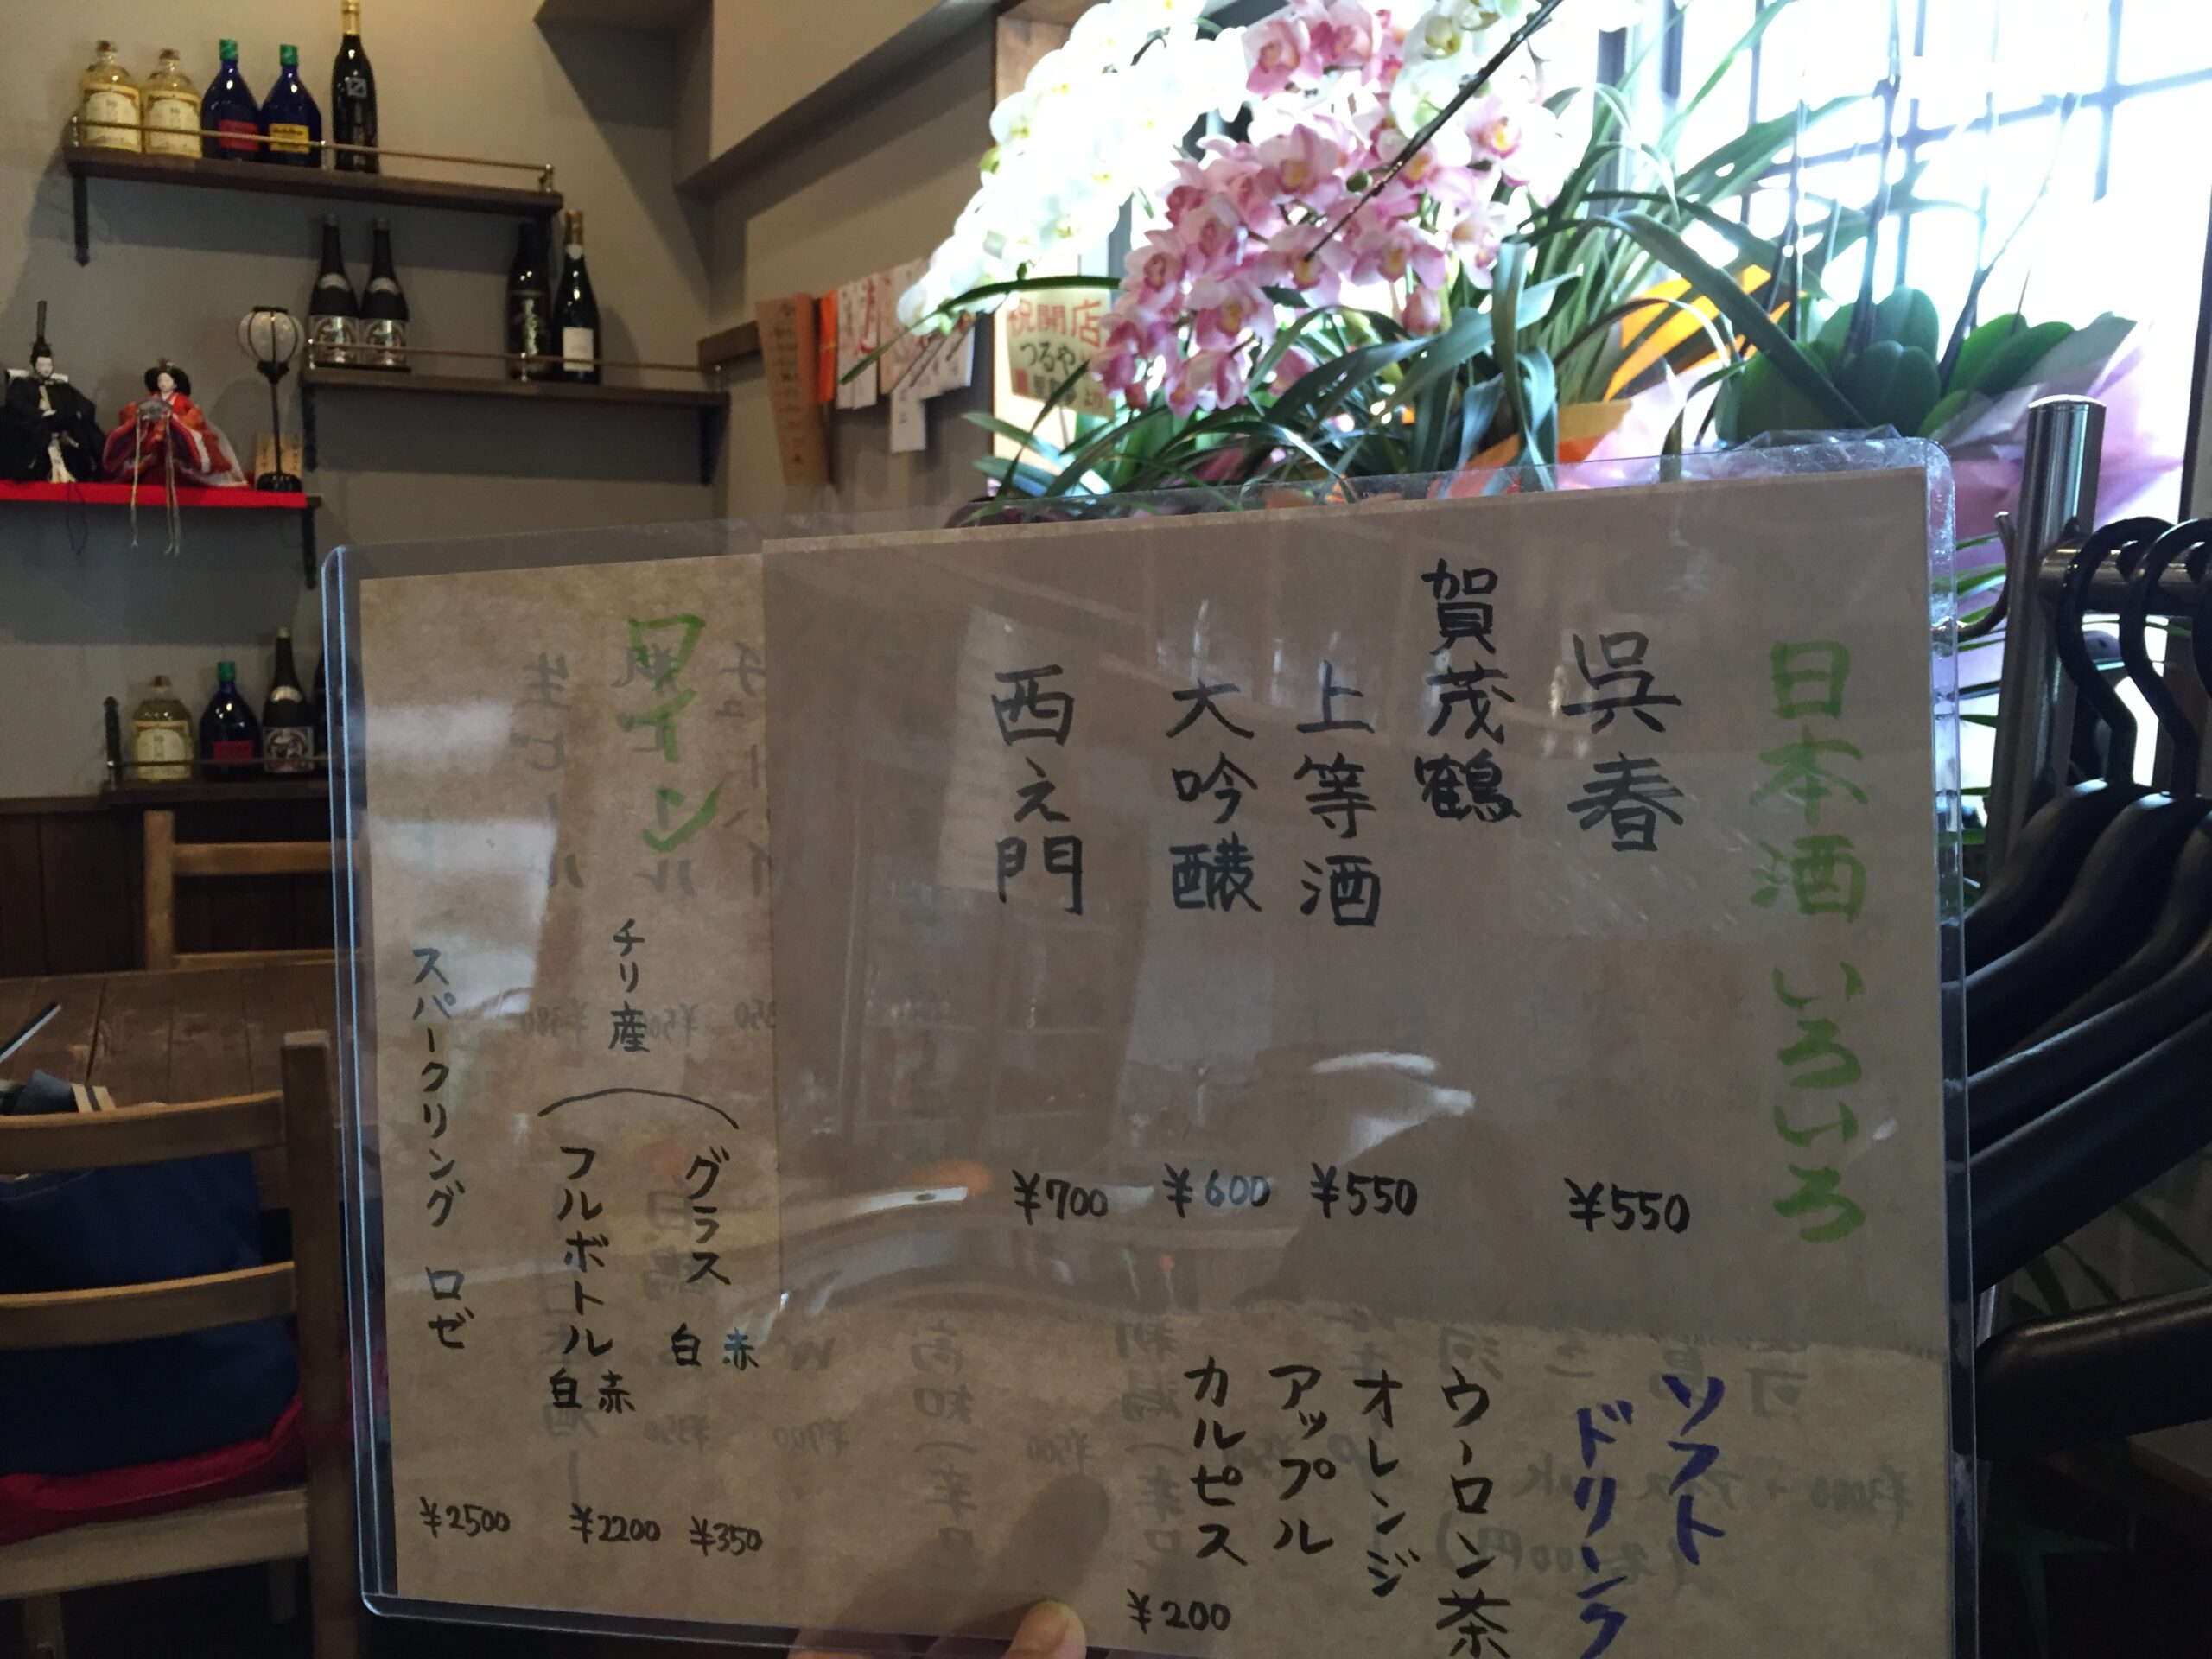 日本酒いろいろ
呉春 ¥550
賀茂鶴
上等酒 ¥550
大吟醸 ¥600
西え門 ¥700
ソフト
ドリンク
ウーロン茶
オレンジ
アップル
カルピス
¥200
ワイン
チリ産
グラス 赤 白 ¥350
フルボトル 赤 白 ¥2200
スパークリング ロゼ ¥2500
祝開店
つるや